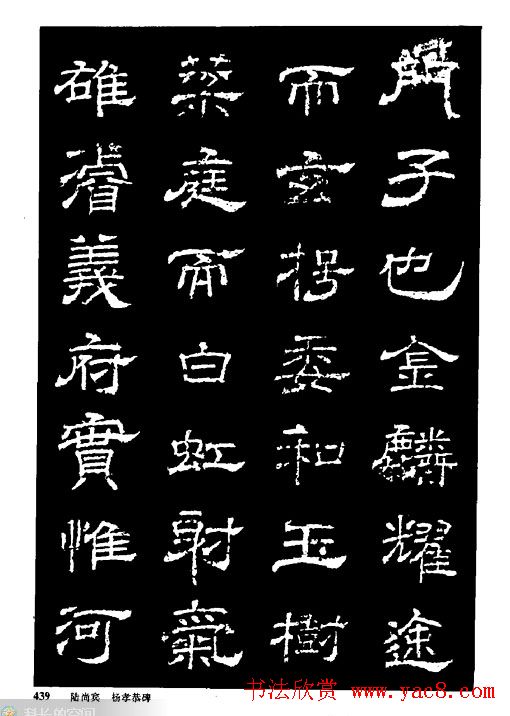 門子也金麟耀途
而玄捃委和玉樹
蘂庭而白虹射氣
雄濬義府實惟河
439 陆尚宾 杨孝恭碑
书法欣赏
www.yac8.com
科长的空间